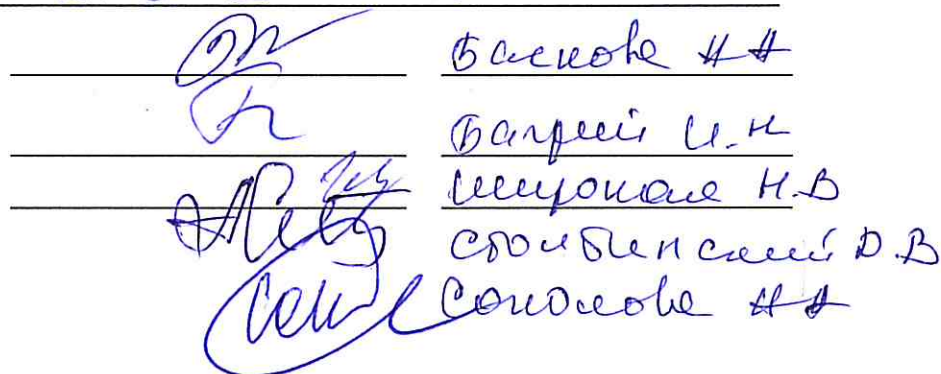 Баскова НН
Багрий И.Н
Широкая Н.В
Столбинский Д.В
Соколова НН